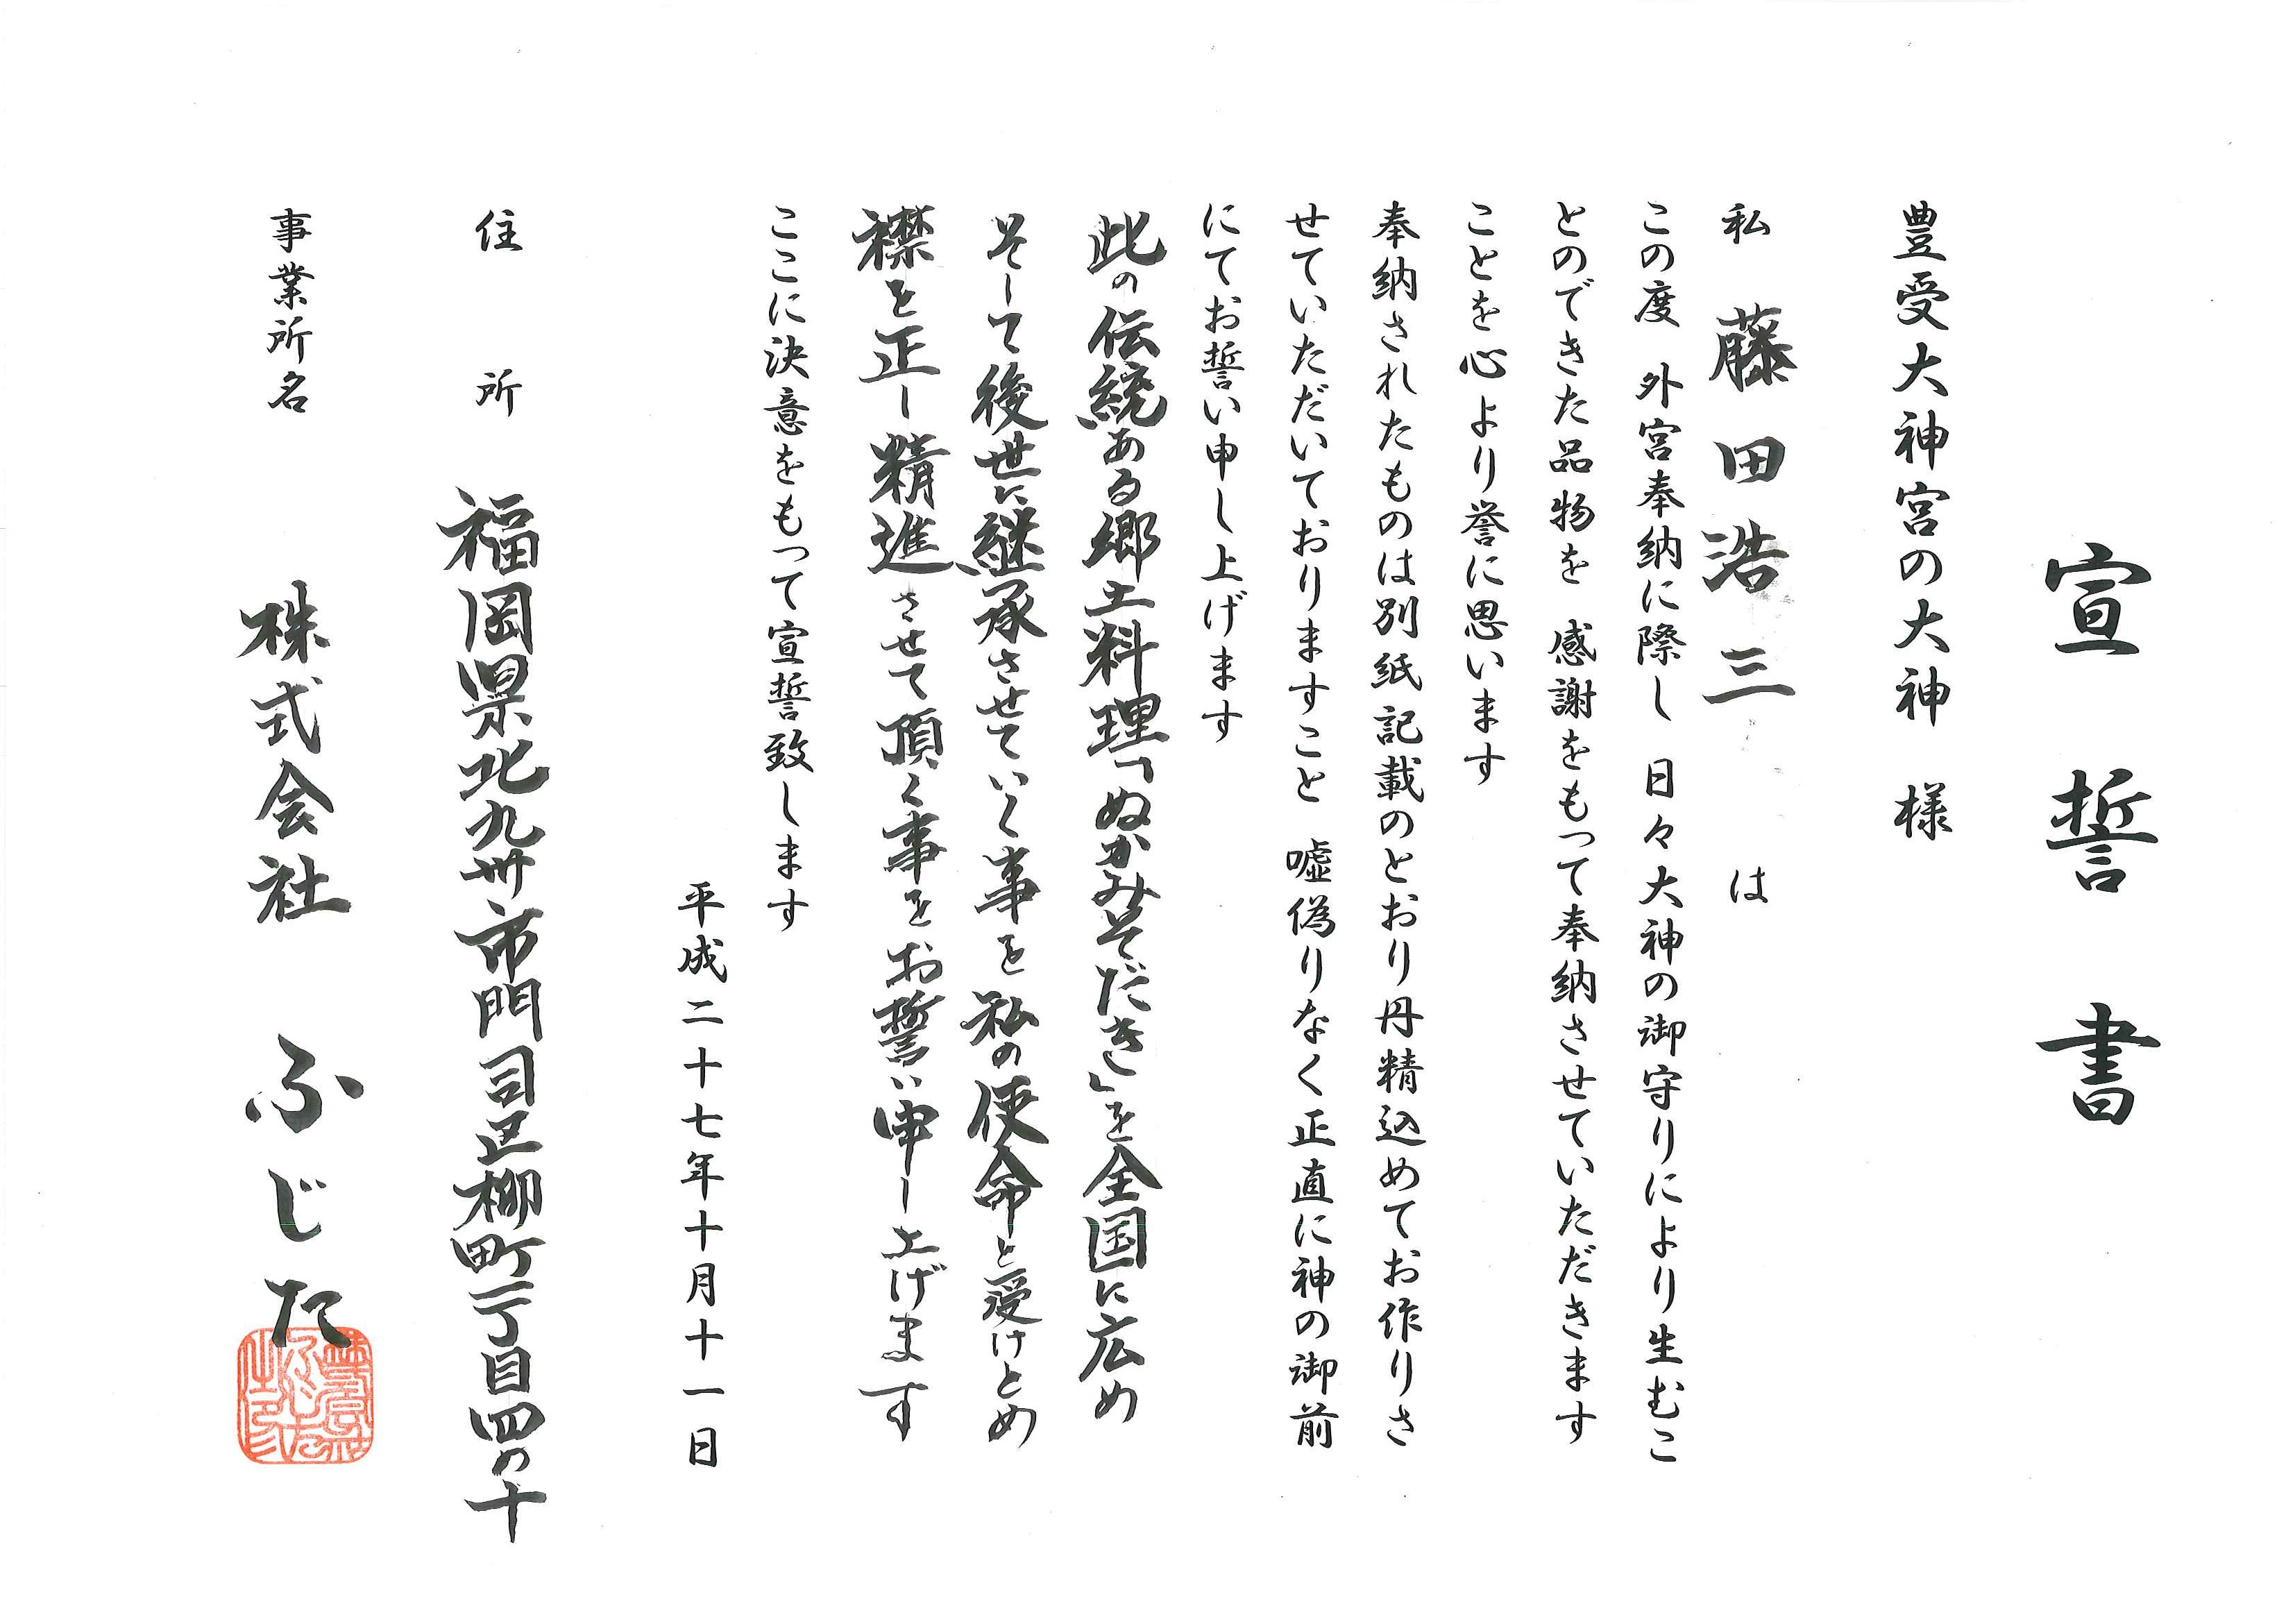 宣誓書
豊受大神宮の大神 様
私 藤田浩三 は
この度 外宮奉納に際し 日々大神の御守りにより生むこ
とのできた品物を 感謝をもって奉納させていただきます
ことを心より誉に思います
奉納されたものは別紙記載のとおり丹精込めてお作りさ
せていただいておりますこと 嘘偽りなく正直に神の御前
にてお誓い申し上げます
此の伝統ある郷土料理「ぬかみそだき」を全国に広め
そして後世に継承させていく事を私の使命と受けとめ
襟を正し精進させて頂く事をお誓い申し上げます
ここに決意をもって宣誓致します
平成二十七年十月十一日
住所 福岡県北九州市門司区柳町一丁目四の十
事業所名 株式会社 ふじた